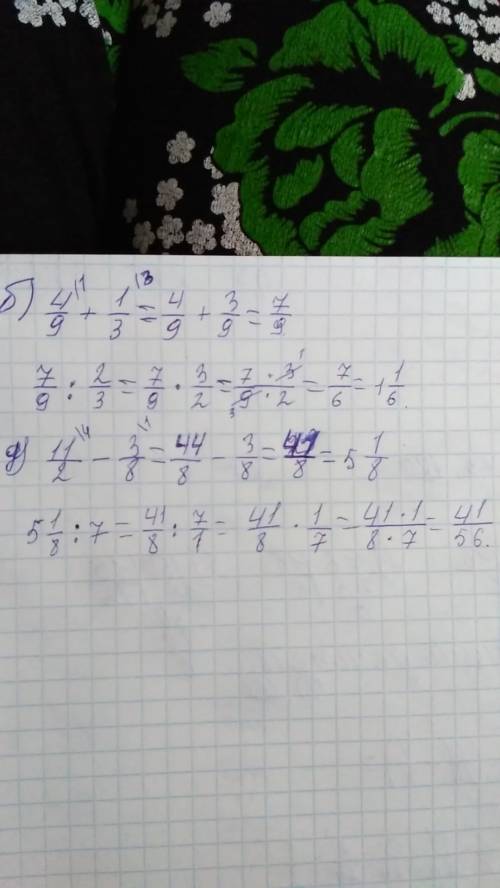 б) 4/9\1 + 1/3\3 = 4/9 + 3/9 = 7/9
7/9 : 2/3 = 7/9 · 3/2 = 7·3 1/9·2 3 = 7/6 = 1 1/6.
д) 11/2\4 − 3/8\1 = 44/8 − 3/8 = 41/8 = 5 1/8
5 1/8 : 7 = 41/8 : 7/1 = 41/8 · 1/7 = 41·1/8·7 = 41/56.